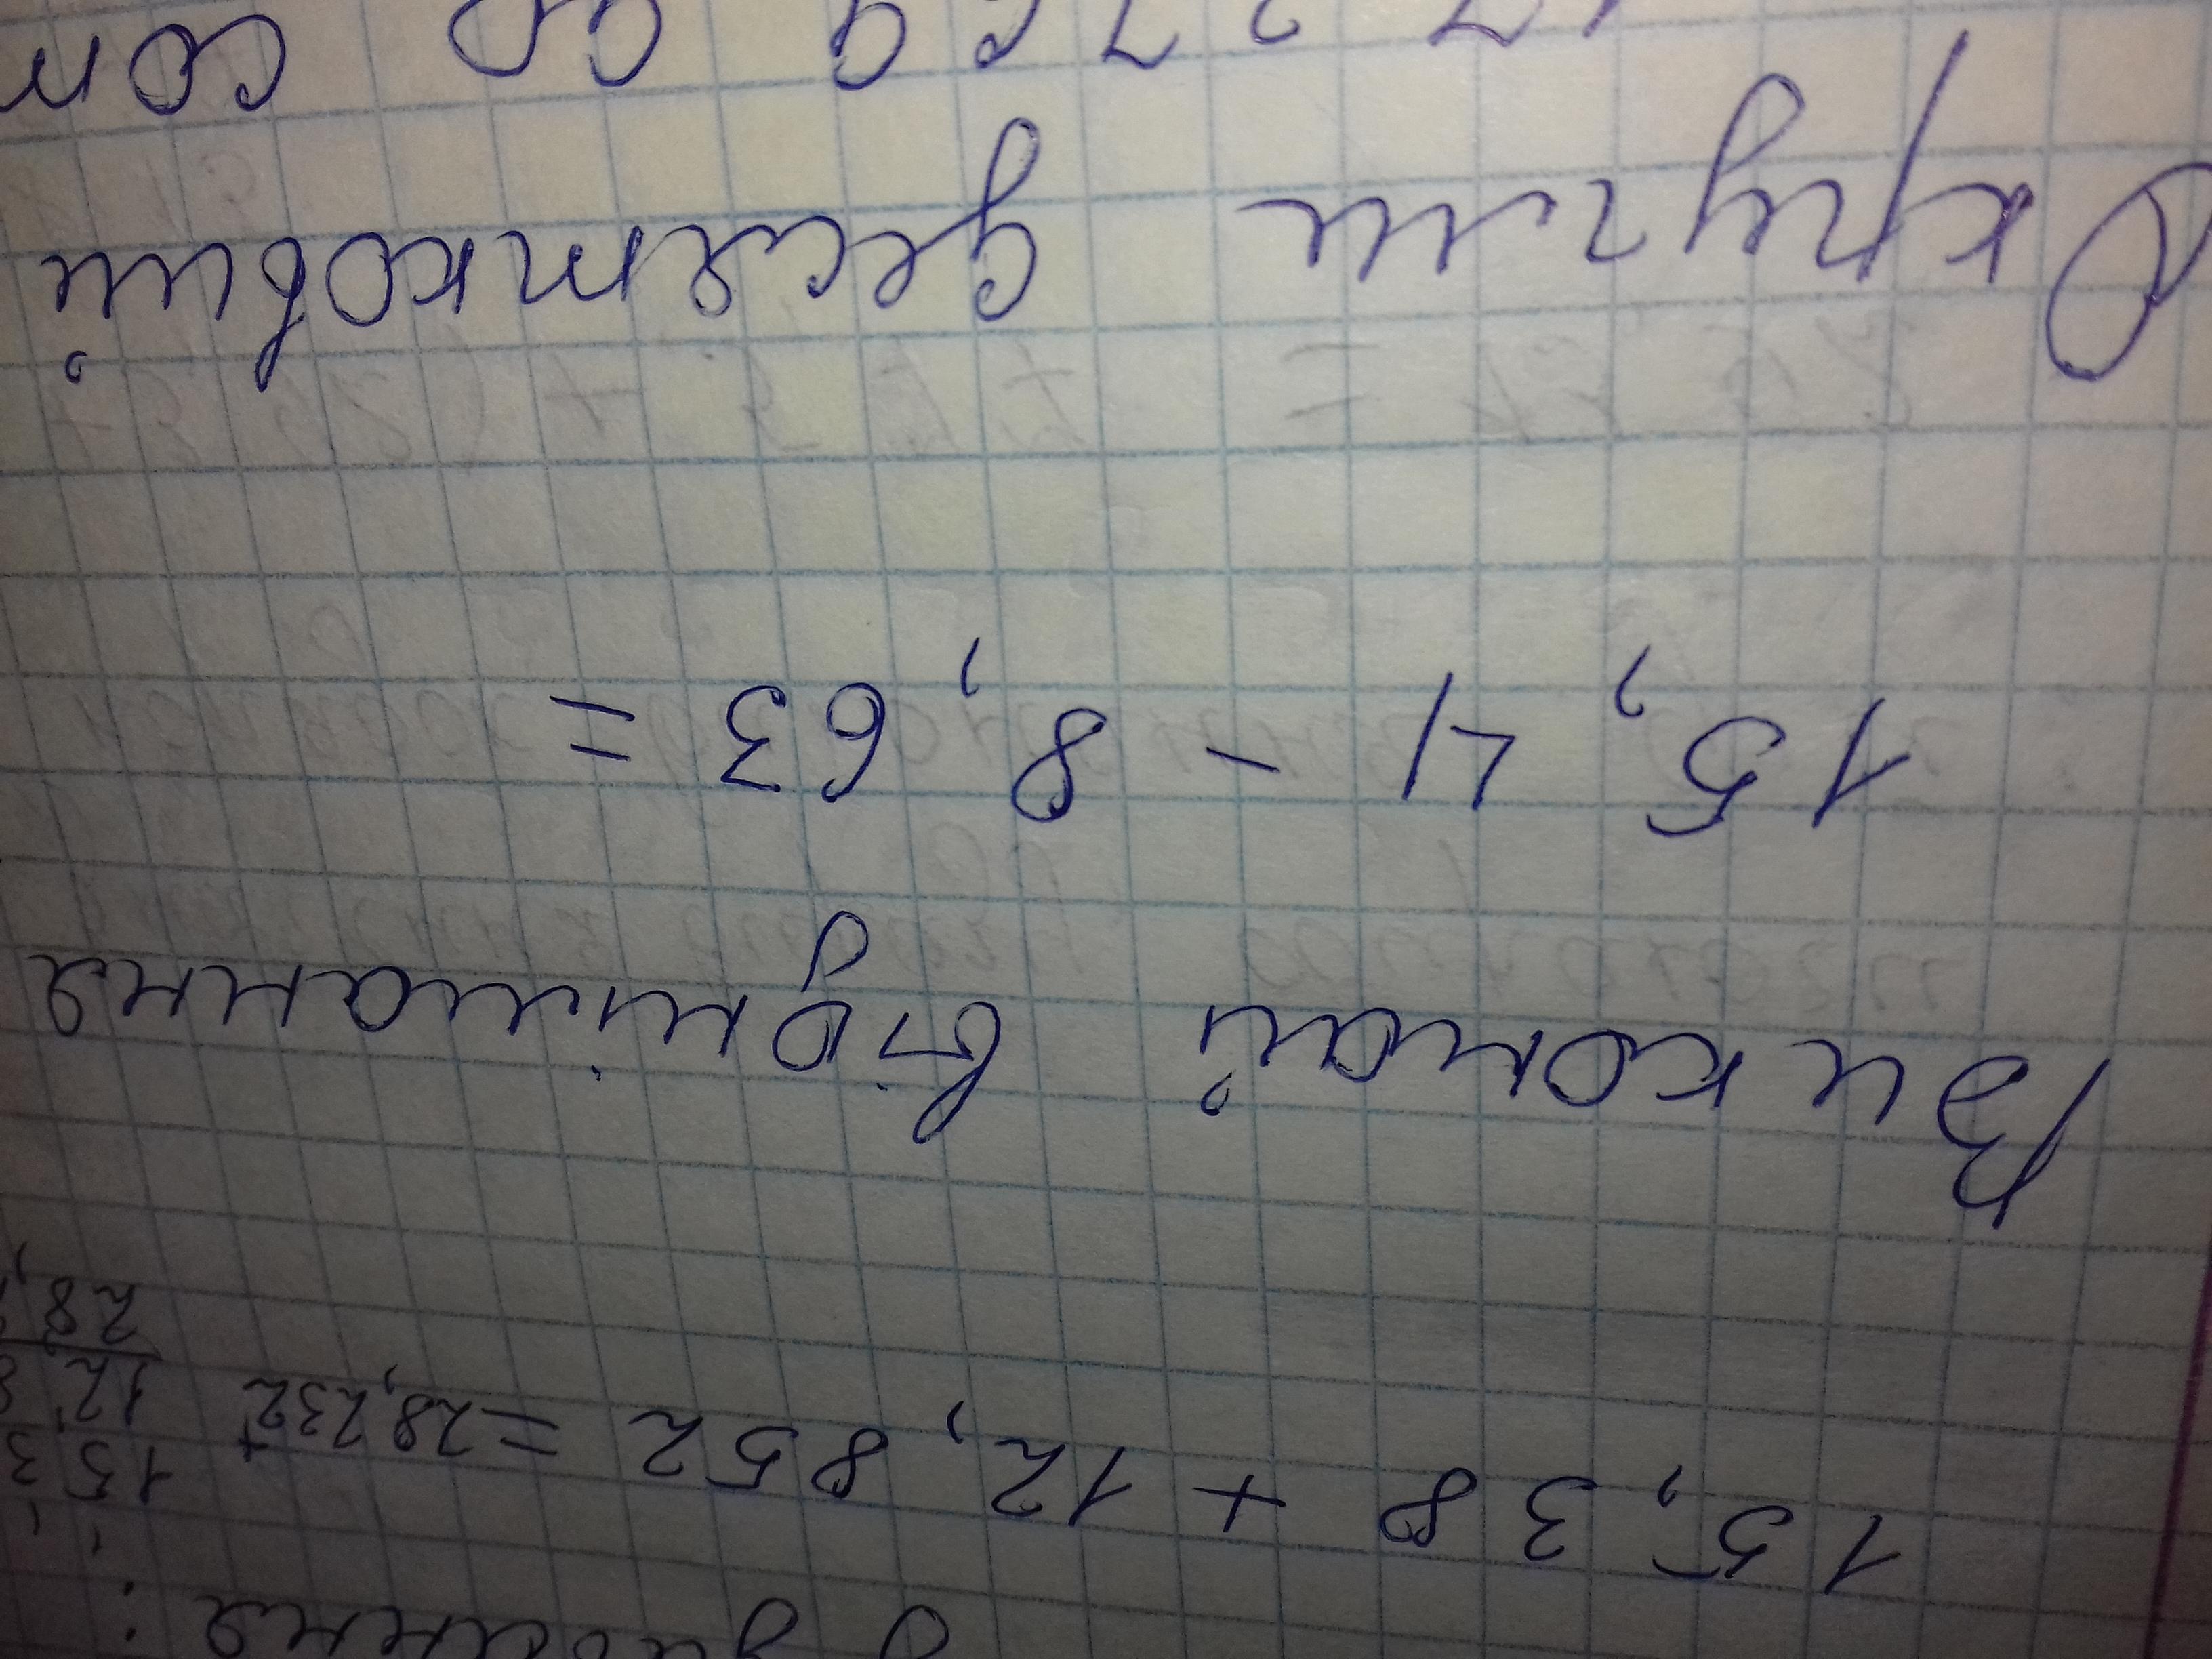 15,38 + 12,852 = 28,232
+ 15 3
12,8
28,
Виконай віднімання
15,4 - 8,63 =
Округли десятковий
до сот